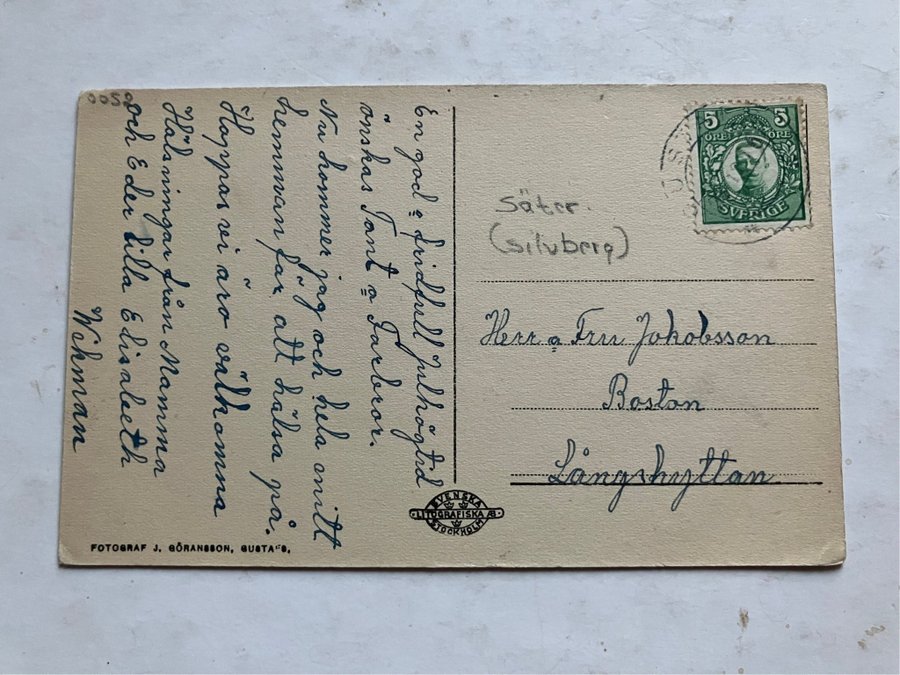 0052
En god a fridfull julhögtid
önskas Tant a Farbror.
Nu kommer jag och hela mitt
hemman far att hälsa på.
Hoppas vi äro välkomna
Hälsningar från Mamma
och Eder lilla Elisabeth
Wehman
FOTOGRAF J. GÖRANSSON, GUSTAFS.
SVENSKA
LITOGRAFISKA AB.
STOCKHOLM
5 5
ÖRE ÖRE
SVERIGE
Säter.
(Silvberg)
Herr a Fru Jakobsson
Boston
Långshyttan